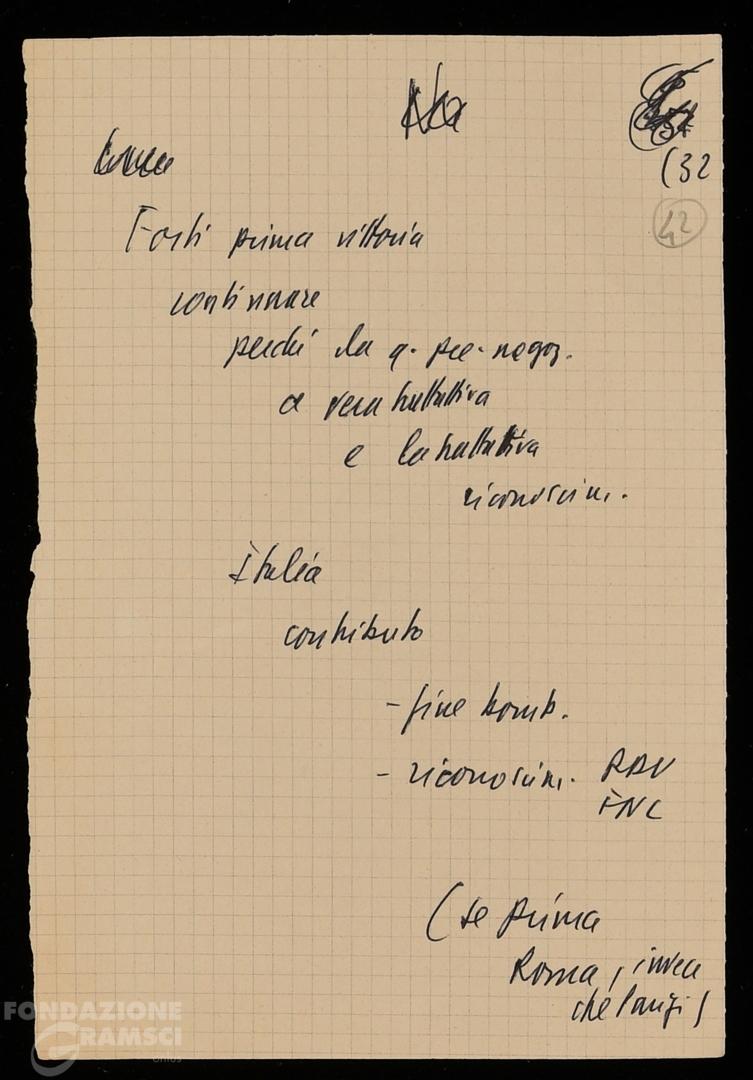 (32
42
Forti prima vittoria
continuare
perché la q. pre-negoz.
a vera trattativa
e la trattativa
riconoscim.
Italia
contributo
- fine bomb.
- riconoscim. RDV
FNL
(se prima
Roma, invece
che Parigi)
FONDAZIONE
GRAMSCI
onlus